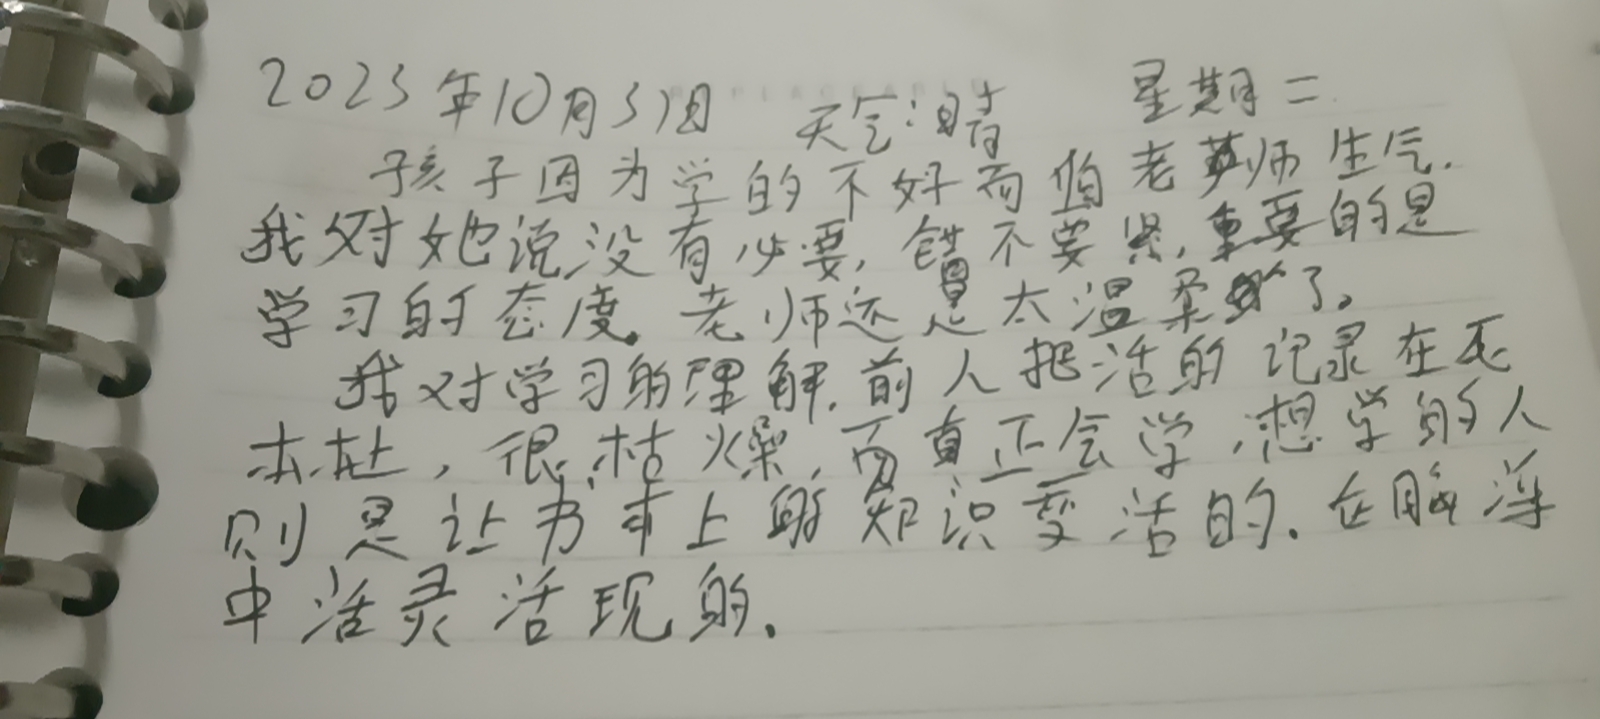 2023年10月31日 天气:晴 星期二
孩子因为学的不好而惹老师生气.
我对她说没有必要,错不要紧,重要的是
学习的态度。老师还是太温柔了。
我对学习的理解.前人把活的记录在死
本本上,很枯燥,而真正会学,想学的人
则是让书本上的知识变活的.在脑海
中活灵活现的.